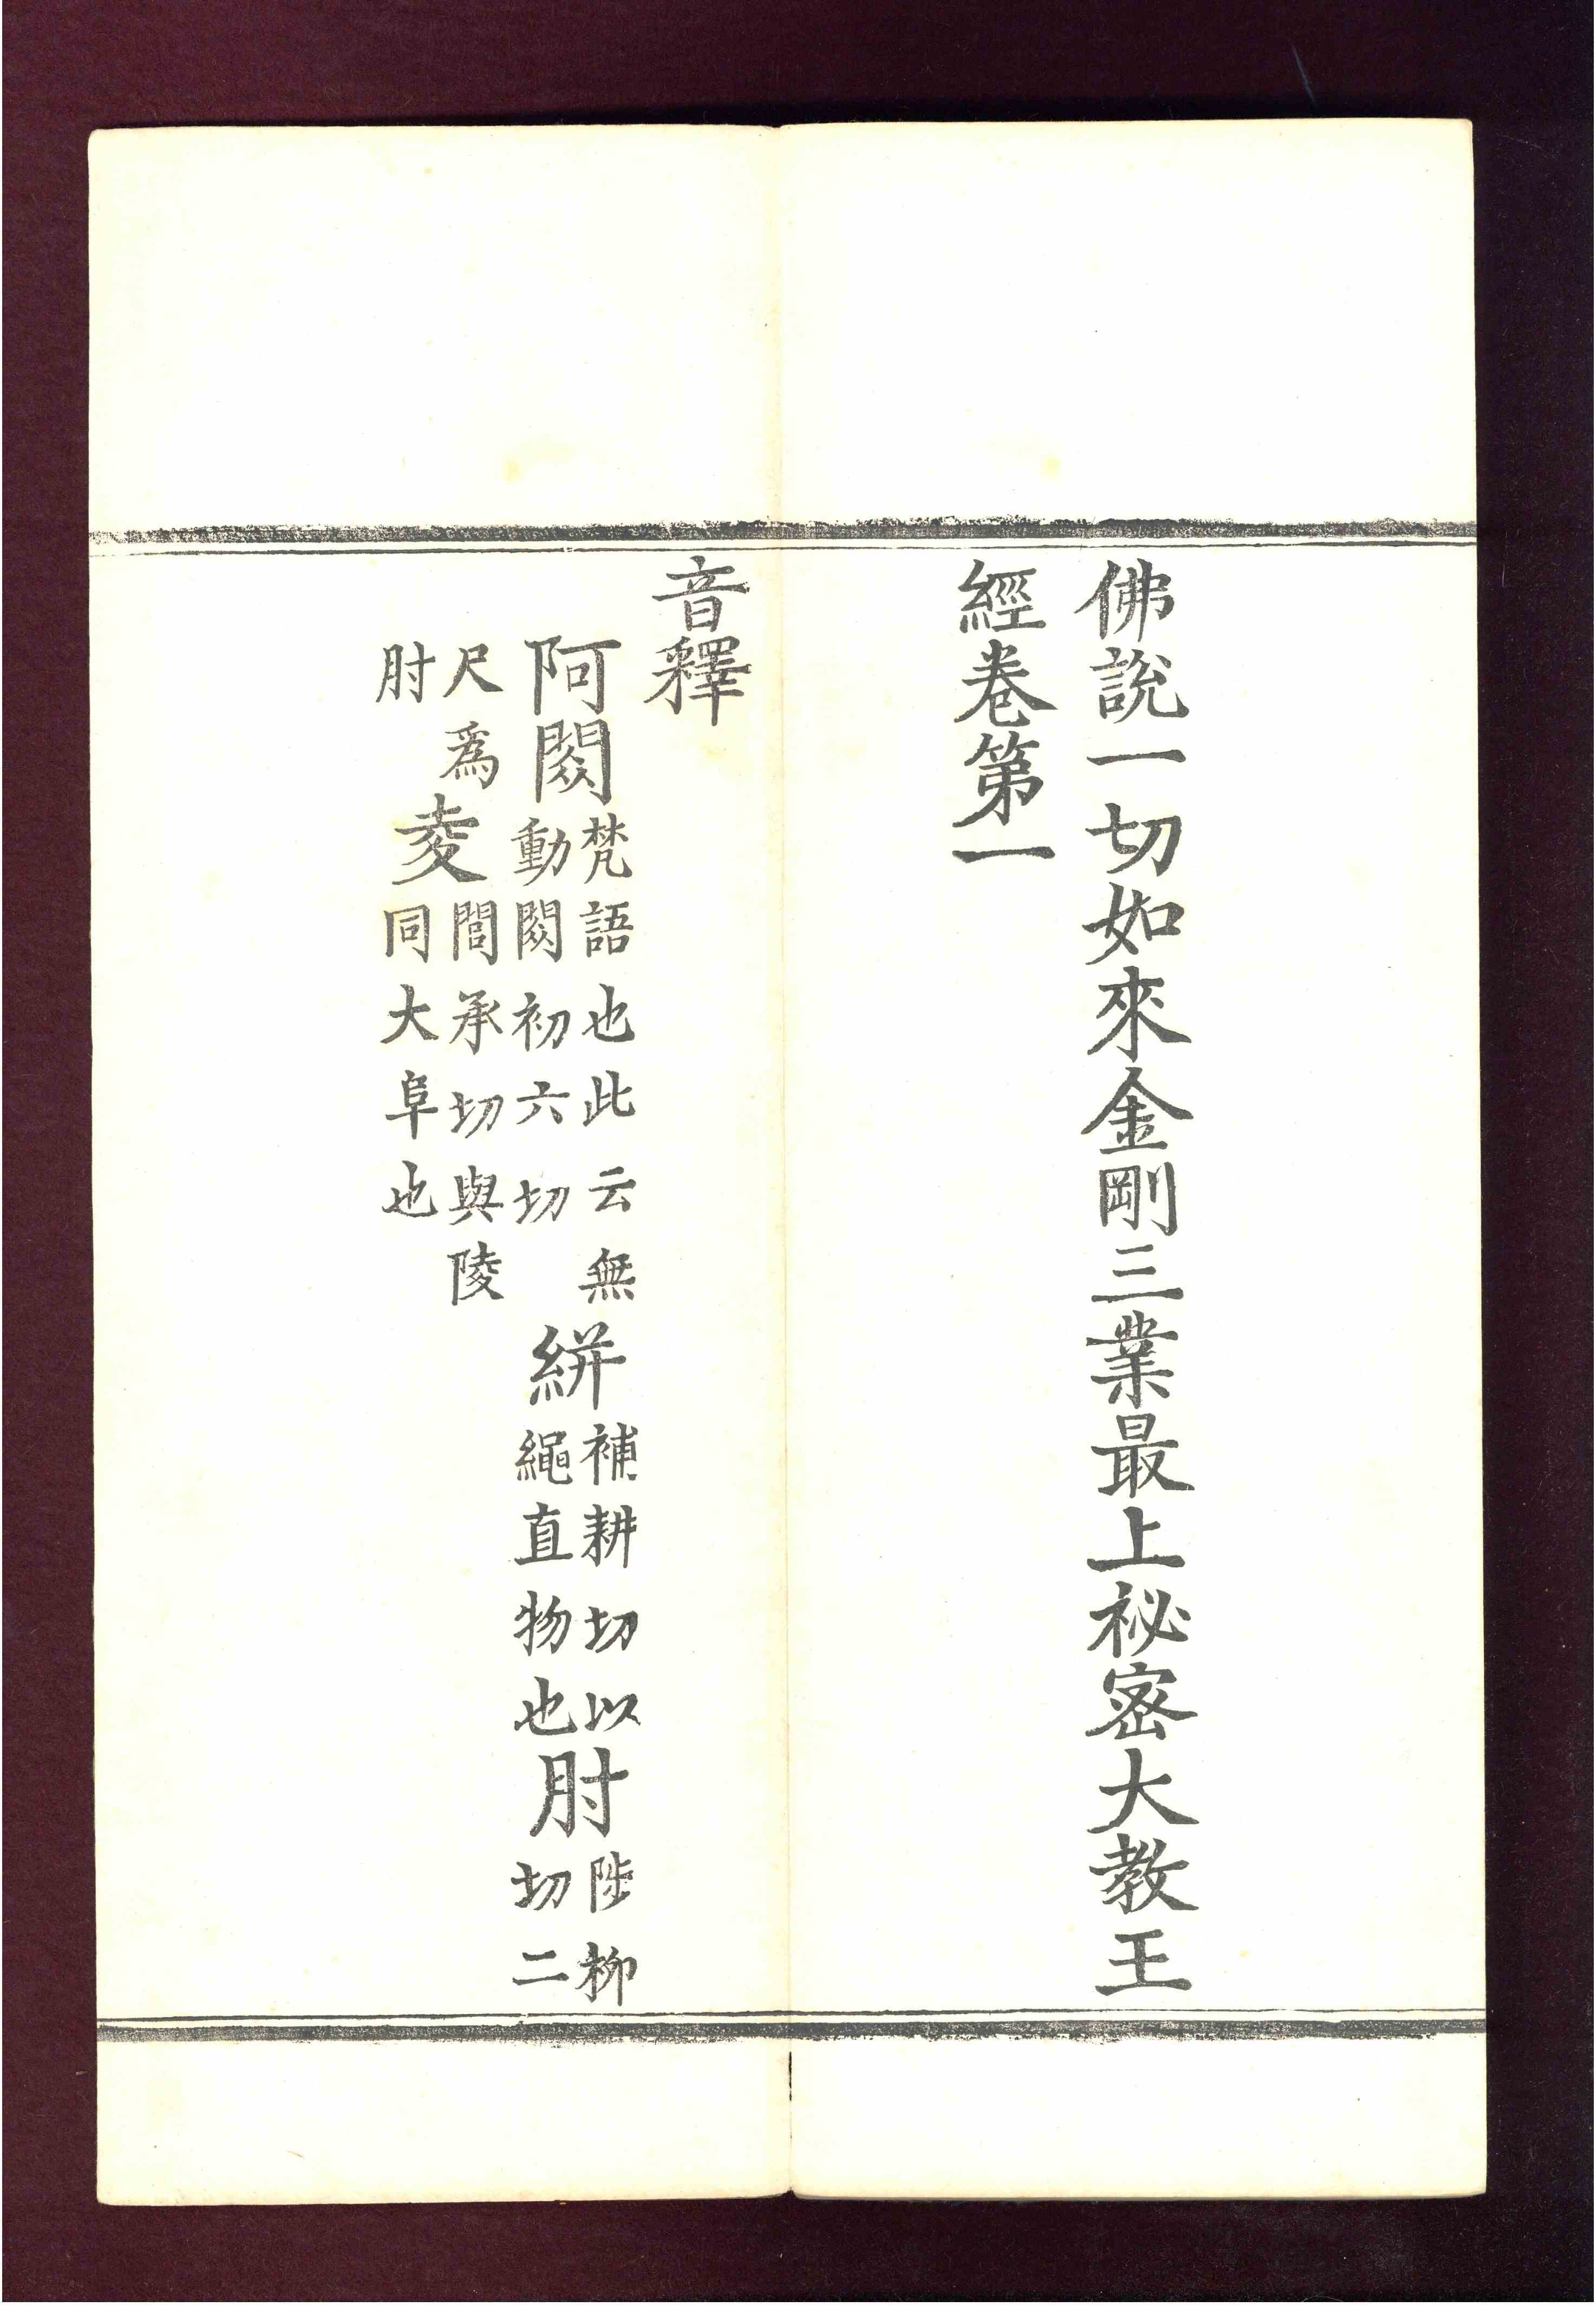 佛說一切如來金剛三業最上祕密大教王
經卷第一
音釋
阿閦梵語也此云無動閦初六切 絣補耕切以繩直物也 肘陟柳切二
尺為肘 夌閭承切與陵同大阜也